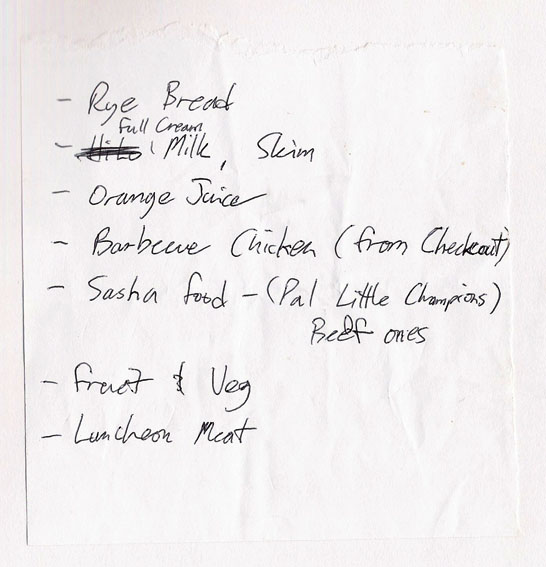 - Rye Bread
Full Cream
- Milk, Skim
- Orange Juice
- Barbecue Chicken (from Checkout)
- Sasha food - (Pal Little Champions)
Beef ones
- Fruit & Veg
- Luncheon Meat